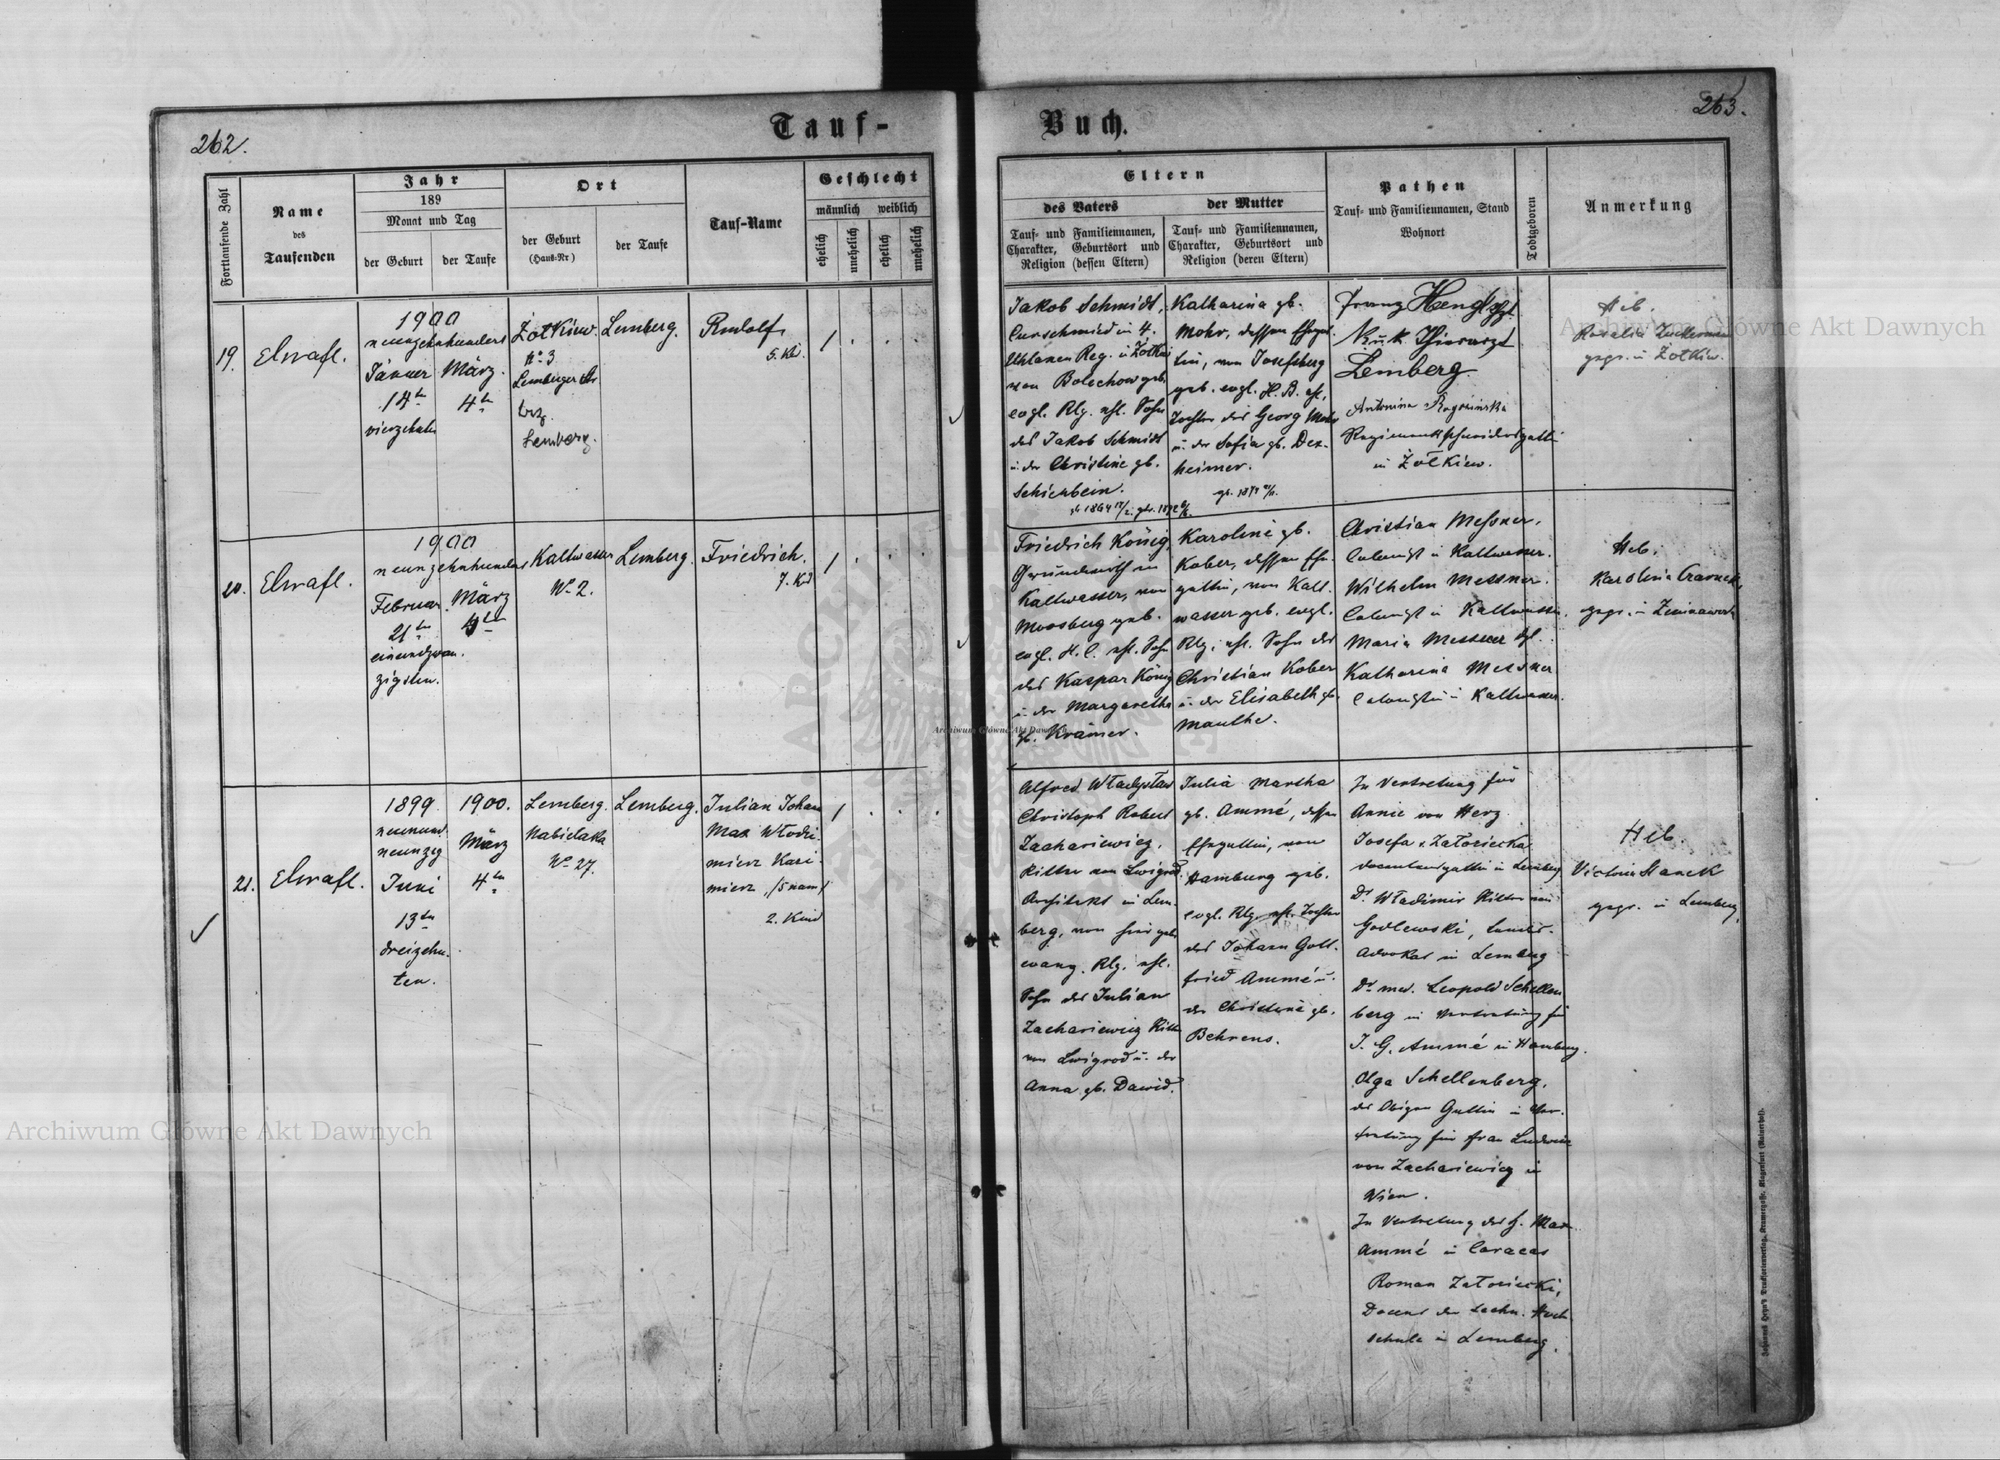 262.
Tauf-
Buch.
263.
Fortlaufende Zahl
Name
des
Taufenden
Jahr
189
Monat und Tag
der Geburt
der Taufe
Ort
der Geburt
(Haus-Nr)
der Taufe
Tauf-Name
Geschlecht
männlich
weiblich
ehelich
unehelich
ehelich
unehelich
Eltern
des Vaters
Tauf- und Familiennamen,
Charakter, Geburtsort und
Religion (dessen Eltern)
der Mutter
Tauf- und Familiennamen,
Charakter, Geburtsort und
Religion (deren Eltern)
Pathen
Tauf- und Familiennamen, Stand
Wohnort
Todtgeboren
Anmerkung
19.
1900
neunzehnhundert
Jänner
14te
vierzehnte
März
4te
Żółkiew.
No 3
Lemberger Str
bez.
Lemberg.
Lemberg.
Rudolf,
5. Kd.
/
Jakob Schmidt,
Curschmied in 4.
Uhlanen Reg. in Żółkiew
von Bolechow geb.
evgl. Rlg. ehl. Sohn
des Jakob Schmidt
u. der Christine gb.
Schienbein.
Katharina gb.
Mohr, dessen Ehegat-
tin, von Josefsberg
geb. evgl. H. B. ehl.
Tochter des Georg Mohr
u. der Sofia gb. Dex-
heimer.
Franz Hengl
K. u. k. Thierarzt
Lemberg
Antonina Rogozinska
Regimentsschneidersgattin
in Żółkiew.
Heb.
Rosalia
gepr. in Żółkiew.
20.
1900
neunzehnhundert
Februar
21te
einundzwan-
zigsten.
März
4te
Kaltwasser
No 2.
Lemberg.
Friedrich.
7. Kd
/
Friedrich König,
Grundwirth in
Kaltwasser, von
Moosberg geb.
evgl. H. C. ehl. Sohn
des Kaspar König
u. der Margaretha
gb. Krämer.
Karoline gb.
Kober, dessen Ehe-
gattin, von Kalt-
wasser geb. evgl.
Rlg. ehl. Sohn des
Christian Kober
u. der Elisabeth gb.
Manthe.
Christian Messner,
Colonist in Kaltwasser.
Wilhelm Messner.
Colonist in Kaltwasser.
Maria Messner
Katharina Messner
Colonistin in Kaltwasser.
Heb.
Karolina
gepr. in Zimnawoda
21.
1899
neunund-
neunzig
Juni
13ten
dreizehn-
ten.
1900.
März
4te
Lemberg.
Nabielaka
No 27.
Lemberg.
Julian Johann
Max Włodzi-
mierz Kazi-
mierz (5 nam)
2. Kind
/
Alfred Władysław
Christoph Robert
Zachariewicz,
Ritter von Lwigrod,
Architekt in Lem-
berg, von hier geb.
evang. Rlg. ehl.
Sohn des Julian
Zachariewicz Ritter
von Lwigrod u. der
Anna gb. Dawid.
Julia Martha
gb. Ammé, dessen
Ehegattin, von
Hamburg geb.
evgl. Rlg. ehl. Tochter
des Johann Gott-
fried Ammé u.
der Christine gb.
Behrens.
In Vertretung für
Annie von Herz
Josefa v. Załoziecka
Docentensgattin in Lemberg
Dr Władimir Ritter von
Godlewski, Landes-
Advokat in Lemberg
Dr med. Leopold Schellen
berg in Vertretung für
J. G. Ammé in Hamburg.
Olga Schellenberg,
des Obigen Gattin in Ver-
tretung für Frau Ludwine
von Zachariewicz in
Wien.
In Vertretung des H. Max
Ammé in Caracas
Roman Załoziecki,
Docent der techn. Hoch
schule in Lemberg.
Heb.
Victoria Stanek
gepr. in Lemberg.
Archiwum Główne Akt Dawnych
Archiwum Główne Akt Dawnych
Archiwum Główne Akt Dawnych